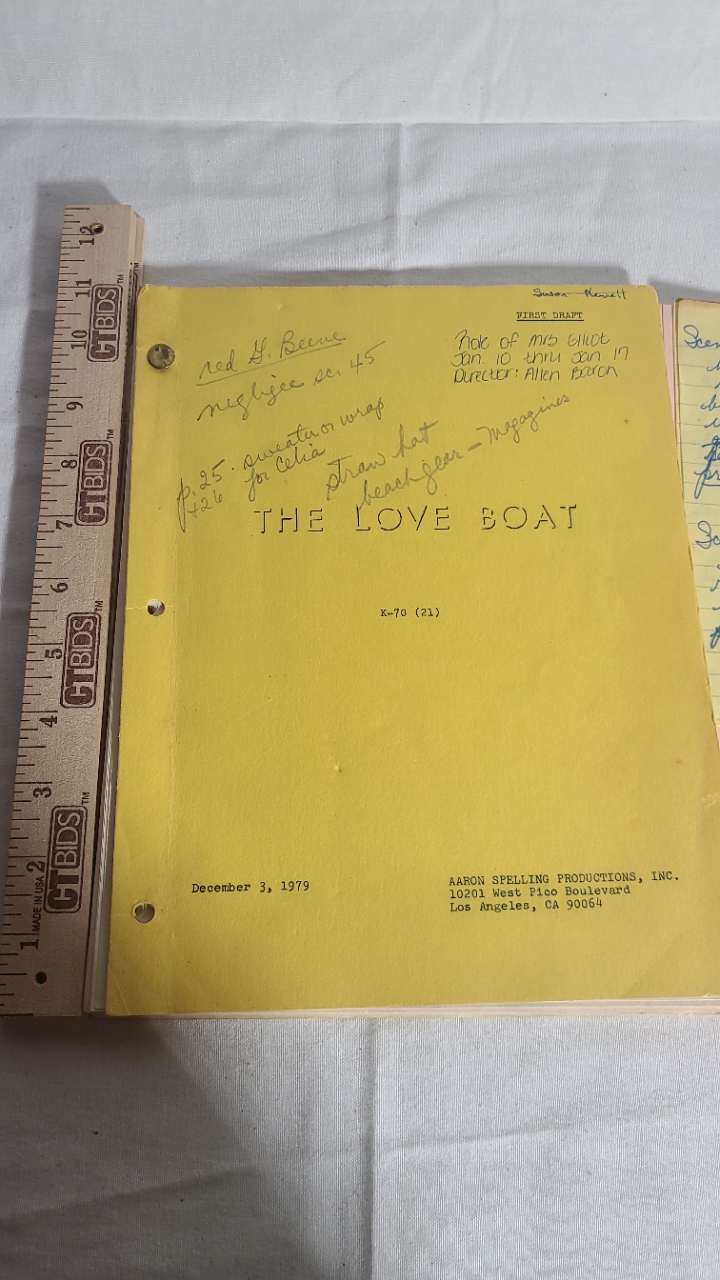 Susan
FIRST DRAFT
Role of Mrs Elliot
Jan. 10 thru Jan. 17
Director: Allen Baron
red G. Beene
negligee sc. 45
p. 25 - sweater or wrap
+26 for Celia
straw hat
beach gear - Magazines
THE LOVE BOAT
K-70 (21)
December 3, 1979
AARON SPELLING PRODUCTIONS, INC.
10201 West Pico Boulevard
Los Angeles, CA 90064
12
11
10
9
8
7
6
5
4
3
2
1
CTBIDS™
CTBIDS™
CTBIDS™
CTBIDS™
MADE IN USA